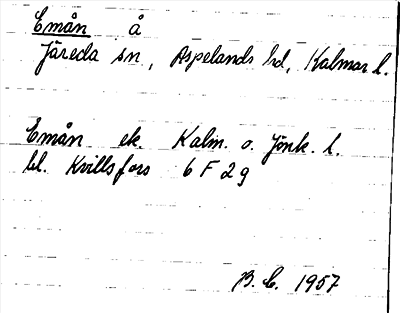 Emån å
Järeda sn., Aspelands hd, Kalmar l.
Emån ek. Kalm. o. Jönk. l.
bl. Kvillsfors 6 F 2 g
B. E. 1957